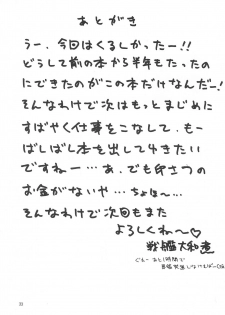 あとがき
うー、今回はくるしかったー!!
どうして前の本から半年もたったの
にできたのがこの本だけなんだー!
そんなわけで次はもっとまじめに
すばやく仕事をこなして、もー
ばしばし本を出して4きたい
ですねー…あ、でも印さつの
お金がないや…ちょほ〜…
そんなわけで次回もまた
よろしくね〜
戦艦大和
ぐえーあと1時間で